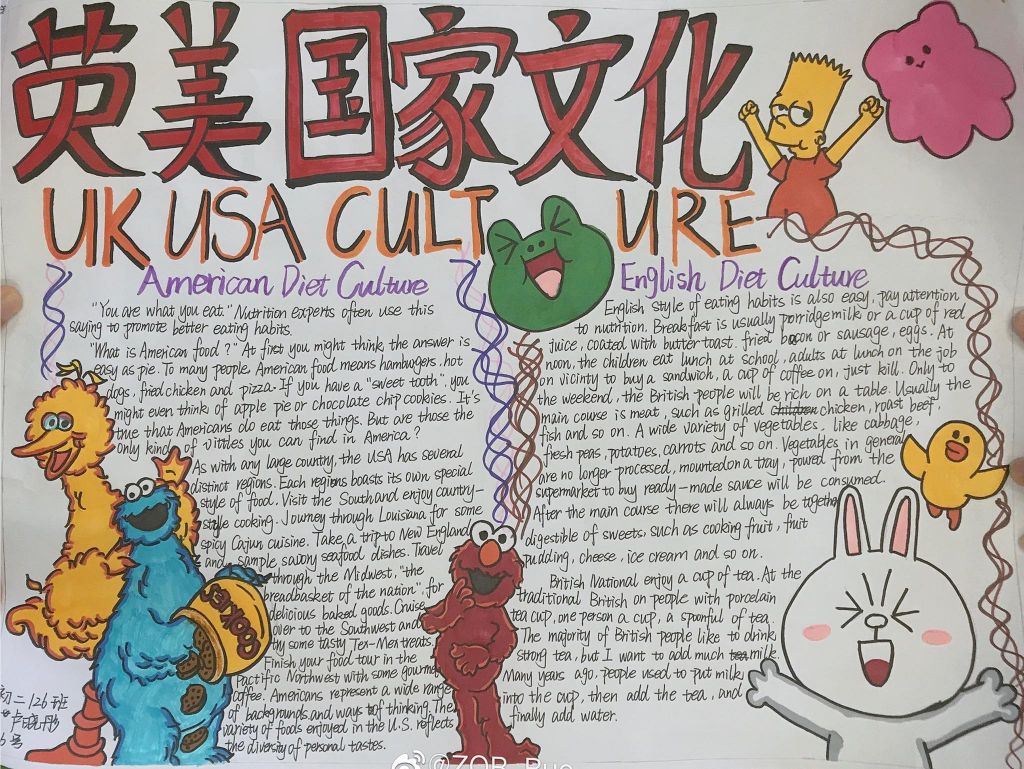 英美国家文化
UK USA CULT URE
American Diet Culture
"You are what you eat." Nutrition experts often use this
saying to promote better eating habits.
"What is American food?" At first you might think the answer is
easy as pie. To many people, American food means hambugers, hot
dogs, fried chicken and pizza. If you have a "sweet tooth", you
might even think of apple pie or chocolate chip cookies. It's
true that Americans do eat those things. But are those the
only kind of vittles you can find in America?
As with any large country, the USA has several
distinct regions. Each regions boasts its own special
style of food. Visit the South and enjoy country-
style cooking. Journey through Louisiana for some
spicy Cajun cuisine. Take a trip to New England
and sample savory seafood dishes. Travel
through the Midwest, "the
breadbasket of the nation", for
delicious baked goods. Cruise
over to the Southwest and
try some tasty Tex-Mex treats.
Finish your food tour in the
Pactific Northwest with some gourmet
coffee. Americans represent a wide range
of backgrounds and ways of thinking. The
variety of foods enjoyed in the U.S. reflects
the diversity of personal tastes.
English Diet Culture
English style of eating habits is also easy, pay attention
to nutrition. Breakfast is usually porridge milk or a cup of red
juice, coated with butter toast. fried bacon or sausage, eggs. At
noon, the children eat lunch at school, adults at lunch on the job
on vicinty to buy a sandwich, a cup of coffee on, just kill. Only to
the weekend, the British people will be rich on a table. Usually the
main course is meat, such as grilled chicken, roast beef,
fish and so on. A wide variety of vegetables, like cabbage,
fresh peas, potatoes, carrots and so on. Vegetables in general
are no longer processed, mounted on a tray, powed from the
supermarket to buy ready-made sauce will be consumed.
After the main course there will always be together
digestible of sweets, such as cooking fruit, fruit
pudding, cheese, ice cream and so on.
British National enjoy a cup of tea. At the
traditional British on people with porcelain
tea cup, one person a cup, a spoonful of tea.
The majority of British people like to drink
strong tea, but I want to add much milk.
Many years ago, people used to put milk
into the cup, then add the tea, and
finally add water.
COOKIES
初二126班
卢晓彤
6号